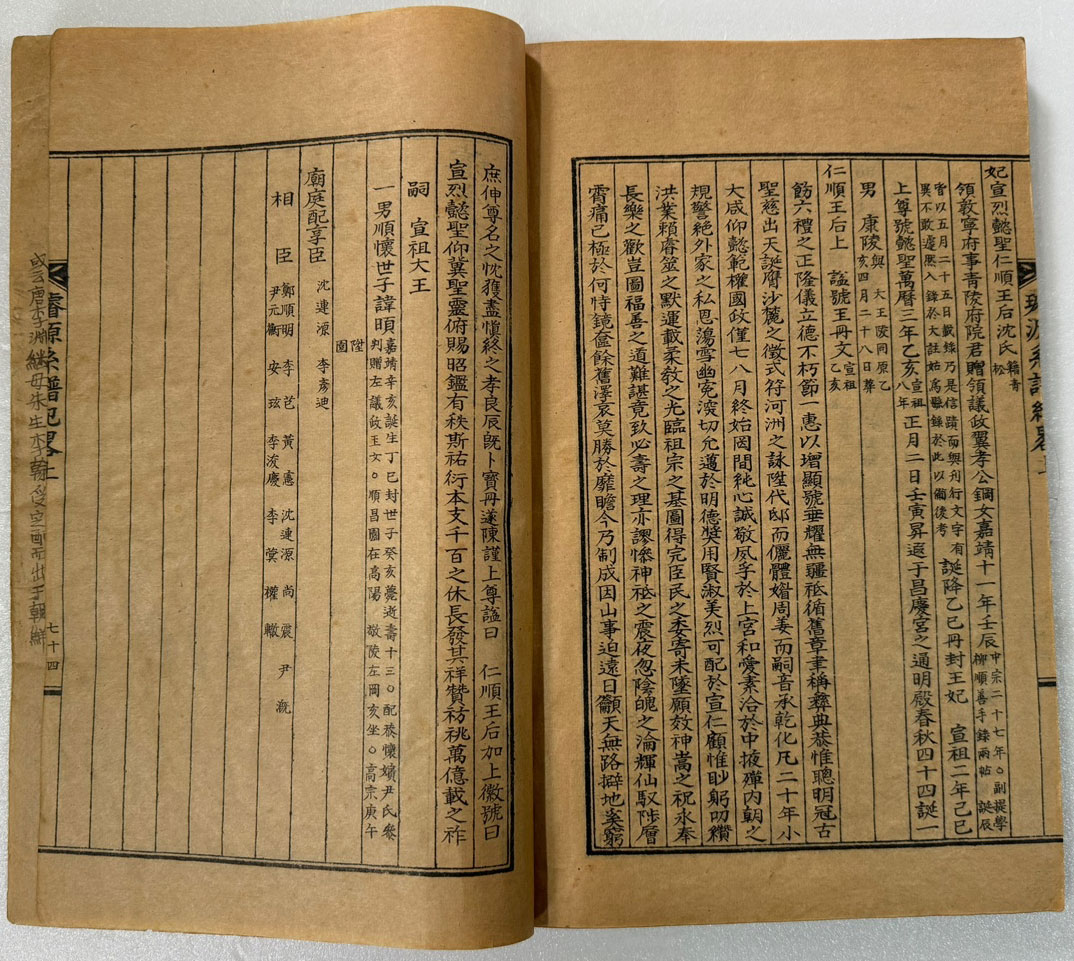 妃宣烈懿聖仁順王后沈氏 籍青松
領敦寧府事青陵府院君贈領議政翼孝公鋼女嘉靖十一年壬辰 中宗二十七年○副提學柳順善手錄兩帖 誕辰
皆以五月二十五日載錄乃是信蹟而與刊行文字有異不敢遽然入錄於大註始爲懸錄於此以備後考 誕降乙巳冊封王妃 宣祖二年己巳
上尊號懿聖萬曆三年乙亥 宣祖八年 正月二日壬寅昇遐于昌慶宮之通明殿春秋四十四誕一
男 康陵與 大王陵同原乙亥四月二十八日葬
仁順王后上 諡號玉冊文 宣祖乙亥
飭六禮之正隆儀立德不朽節一惠以增顯號垂耀無疆祗循舊章聿稱彜典恭惟聰明冠古
聖慈出天誕膺沙麓之徵式符河洲之詠陞代邸而儷體媚周姜而嗣音承乾化凡二十年小
大咸仰懿範權國政僅七八月終始罔間純心誠敬夙孚於上宮和愛素洽於中掖殫內朝之
規警絶外家之私恩蕩雪幽寃深切允邁於明德奬用賢淑美烈可配於宣仁顧惟眇躬叨纘
洪業賴睿筮之默運載柔敎之光臨祖宗之基圖得完臣民之委寄未墜願效神嵩之祝永奉
長樂之歡豈圖福善之道難諶竟致必壽之理亦謬慘神祗之震夜忽陰魄之淪輝仙馭陟層
霄痛已極於何恃鏡奩餘舊澤哀莫勝於靡瞻今乃制成因山事迫遠日籲天無路擗地奚窮
庶伸尊名之忱獲盡愼終之孝良辰旣卜寶冊遂陳謹上尊諡曰 仁順王后加上徽號曰
宣烈懿聖仰冀聖靈俯賜昭鑑有秩斯祐衍本支千百之休長發其祥贊祊祧萬億載之祚
嗣 宣祖大王
一男順懷世子諱暊 嘉靖辛亥誕生丁巳封世子癸亥薨逝壽十三○配恭懷嬪尹氏參判贈左議政玉女○順昌園在高陽 敬陵左岡亥坐○高宗庚午
陞園
廟庭配享臣 沈連源 李彦迪
相臣 鄭順明 李芑 黃憲 沈連源 尚震 尹漑
尹元衡 安玹 李浚慶 李蓂 權轍
璿源系譜紀畧 二
七十四